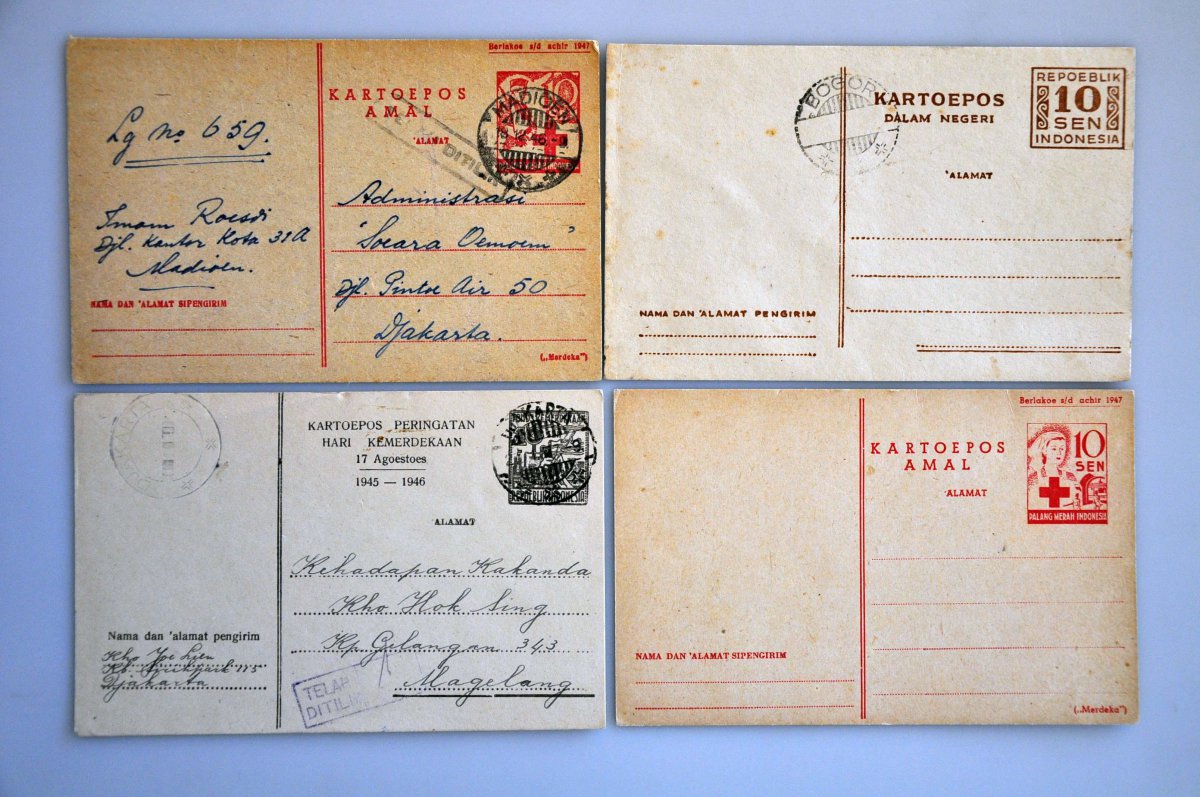 Berlakoe s/d achir 1947
KARTOEPOS
AMAL
10
'ALAMAT
MADIOEN
DITIL
INDONESIA
Lg no 659.
Imam Roesdi
Djl. Kantor Kota 31A
Madioen.
NAMA DAN 'ALAMAT SIPENGIRIM
Administrasi
"Soeara Oemoem"
Djl. Pintoe Air 50
Djakarta.
(„Merdeka")
BOGOR
KARTOEPOS
DALAM NEGERI
REPOEBLIK
10
SEN
INDONESIA
'ALAMAT
NAMA DAN 'ALAMAT PENGIRIM
KARTOEPOS PERINGATAN
HARI KEMERDEKAAN
17 Agoestoes
1945 — 1946
ALAMAT
Kehadapan Kakanda
Kho Hok Sing
Kp Gelangan 343
Magelang
Nama dan 'alamat pengirim
Kho Joe Lien
Djakarta
TELAH
DITILIK
Berlakoe s/d achir 1947
KARTOEPOS
AMAL
ALAMAT
10
SEN
PALANG MERAH INDONESIA
NAMA DAN 'ALAMAT SIPENGIRIM
(„Merdeka")